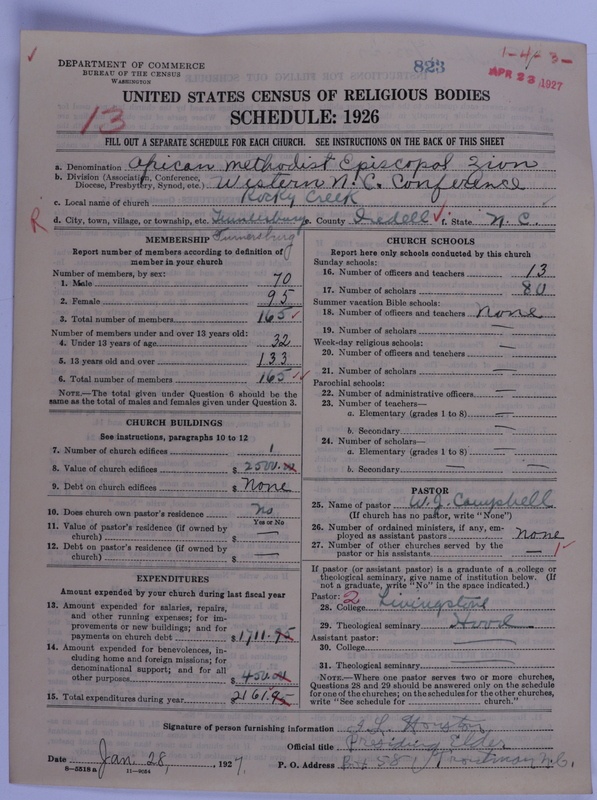 1-4-3-
DEPARTMENT OF COMMERCE
BUREAU OF THE CENSUS
WASHINGTON
823
APR 23 1927
UNITED STATES CENSUS OF RELIGIOUS BODIES
SCHEDULE: 1926
13
FILL OUT A SEPARATE SCHEDULE FOR EACH CHURCH. SEE INSTRUCTIONS ON THE BACK OF THIS SHEET
a. Denomination African Methodist Episcopal Zion
b. Division (Association, Conference, Diocese, Presbytery, Synod, etc.) Western N. C. Conference
c. Local name of church Rocky Creek
R d. City, town, village, or township, etc. Turnersburg e. County Iredell f. State N. C.
Turnersburg
MEMBERSHIP
Report number of members according to definition of
member in your church
Number of members, by sex:
1. Male 70
2. Female 95
3. Total number of members 165
Number of members under and over 13 years old:
4. Under 13 years of age 32
5. 13 years old and over 133
6. Total number of members 165
NOTE.—The total given under Question 6 should be
same as the total of males and females given under Question 3.
CHURCH BUILDINGS
See instructions, paragraphs 10 to 12
7. Number of church edifices 1
8. Value of church edifices $ 2500.00
9. Debt on church edifices $ None
10. Does church own pastor's residence No
Yes or No
11. Value of pastor's residence (if owned by
church) $ —
12. Debt on pastor's residence (if owned by
church) $ —
EXPENDITURES
Amount expended by your church during last fiscal year
13. Amount expended for salaries, repairs,
and other running expenses; for im-
provements or new buildings; and for
payments on church debt $ 1711.95
14. Amount expended for benevolences, in-
cluding home and foreign missions; for
denominational support; and for all
other purposes $ 450.00
15. Total expenditures during year $ 2161.95
CHURCH SCHOOLS
Report here only schools conducted by this church
Sunday schools:
16. Number of officers and teachers 13
17. Number of scholars 80
Summer vacation Bible schools:
18. Number of officers and teachers None
19. Number of scholars —
Week-day religious schools:
20. Number of officers and teachers —
21. Number of scholars —
Parochial schools:
22. Number of administrative officers —
23. Number of teachers—
a. Elementary (grades 1 to 8) —
b. Secondary —
24. Number of scholars—
a. Elementary (grades 1 to 8) —
b. Secondary —
PASTOR
25. Name of pastor W. J. Campbell
(If church has no pastor, write "None")
26. Number of ordained ministers, if any, em-
ployed as assistant pastors None
27. Number of other churches served by the
pastor or his assistants — 1-
If pastor (or assistant pastor) is a graduate of a college or
theological seminary, give name of institution below. (If
not a graduate, write "No" in the space indicated.)
Pastor: 2
28. College Livingstone
29. Theological seminary Hood
Assistant pastor:
30. College —
31. Theological seminary —
NOTE.—Where one pastor serves two or more churches,
Questions 28 and 29 should be answered only on the schedule
for one of the churches; on the schedules for the other churches,
write "See schedule for church."
Signature of person furnishing information
Official title Presiding Elder
Date Jan. 28, 1927. P. O. Address Box 581 Troutman N.C.
8-5518a 11-9054